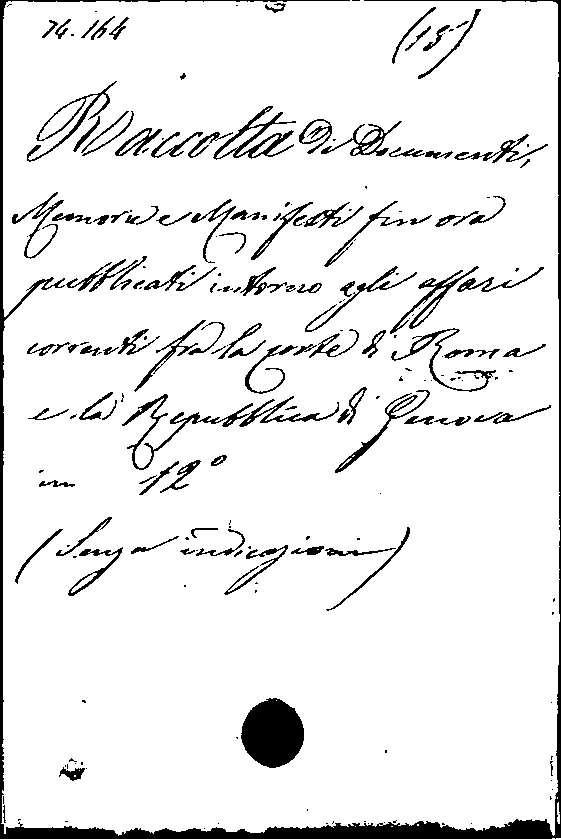 74.164 (15)
Raccolta di Documenti,
Memorie e Manifesti fin ora
pubblicati intorno agli affari
correnti fra la corte di Roma
e la Repubblica di Genova
in 12º
(Senza indicazioni)